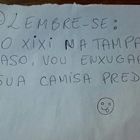 LEMBRE-SE:
O XIXI NA TAMPA
ASO, VOU ENXUGAR
SUA CAMISA PRED